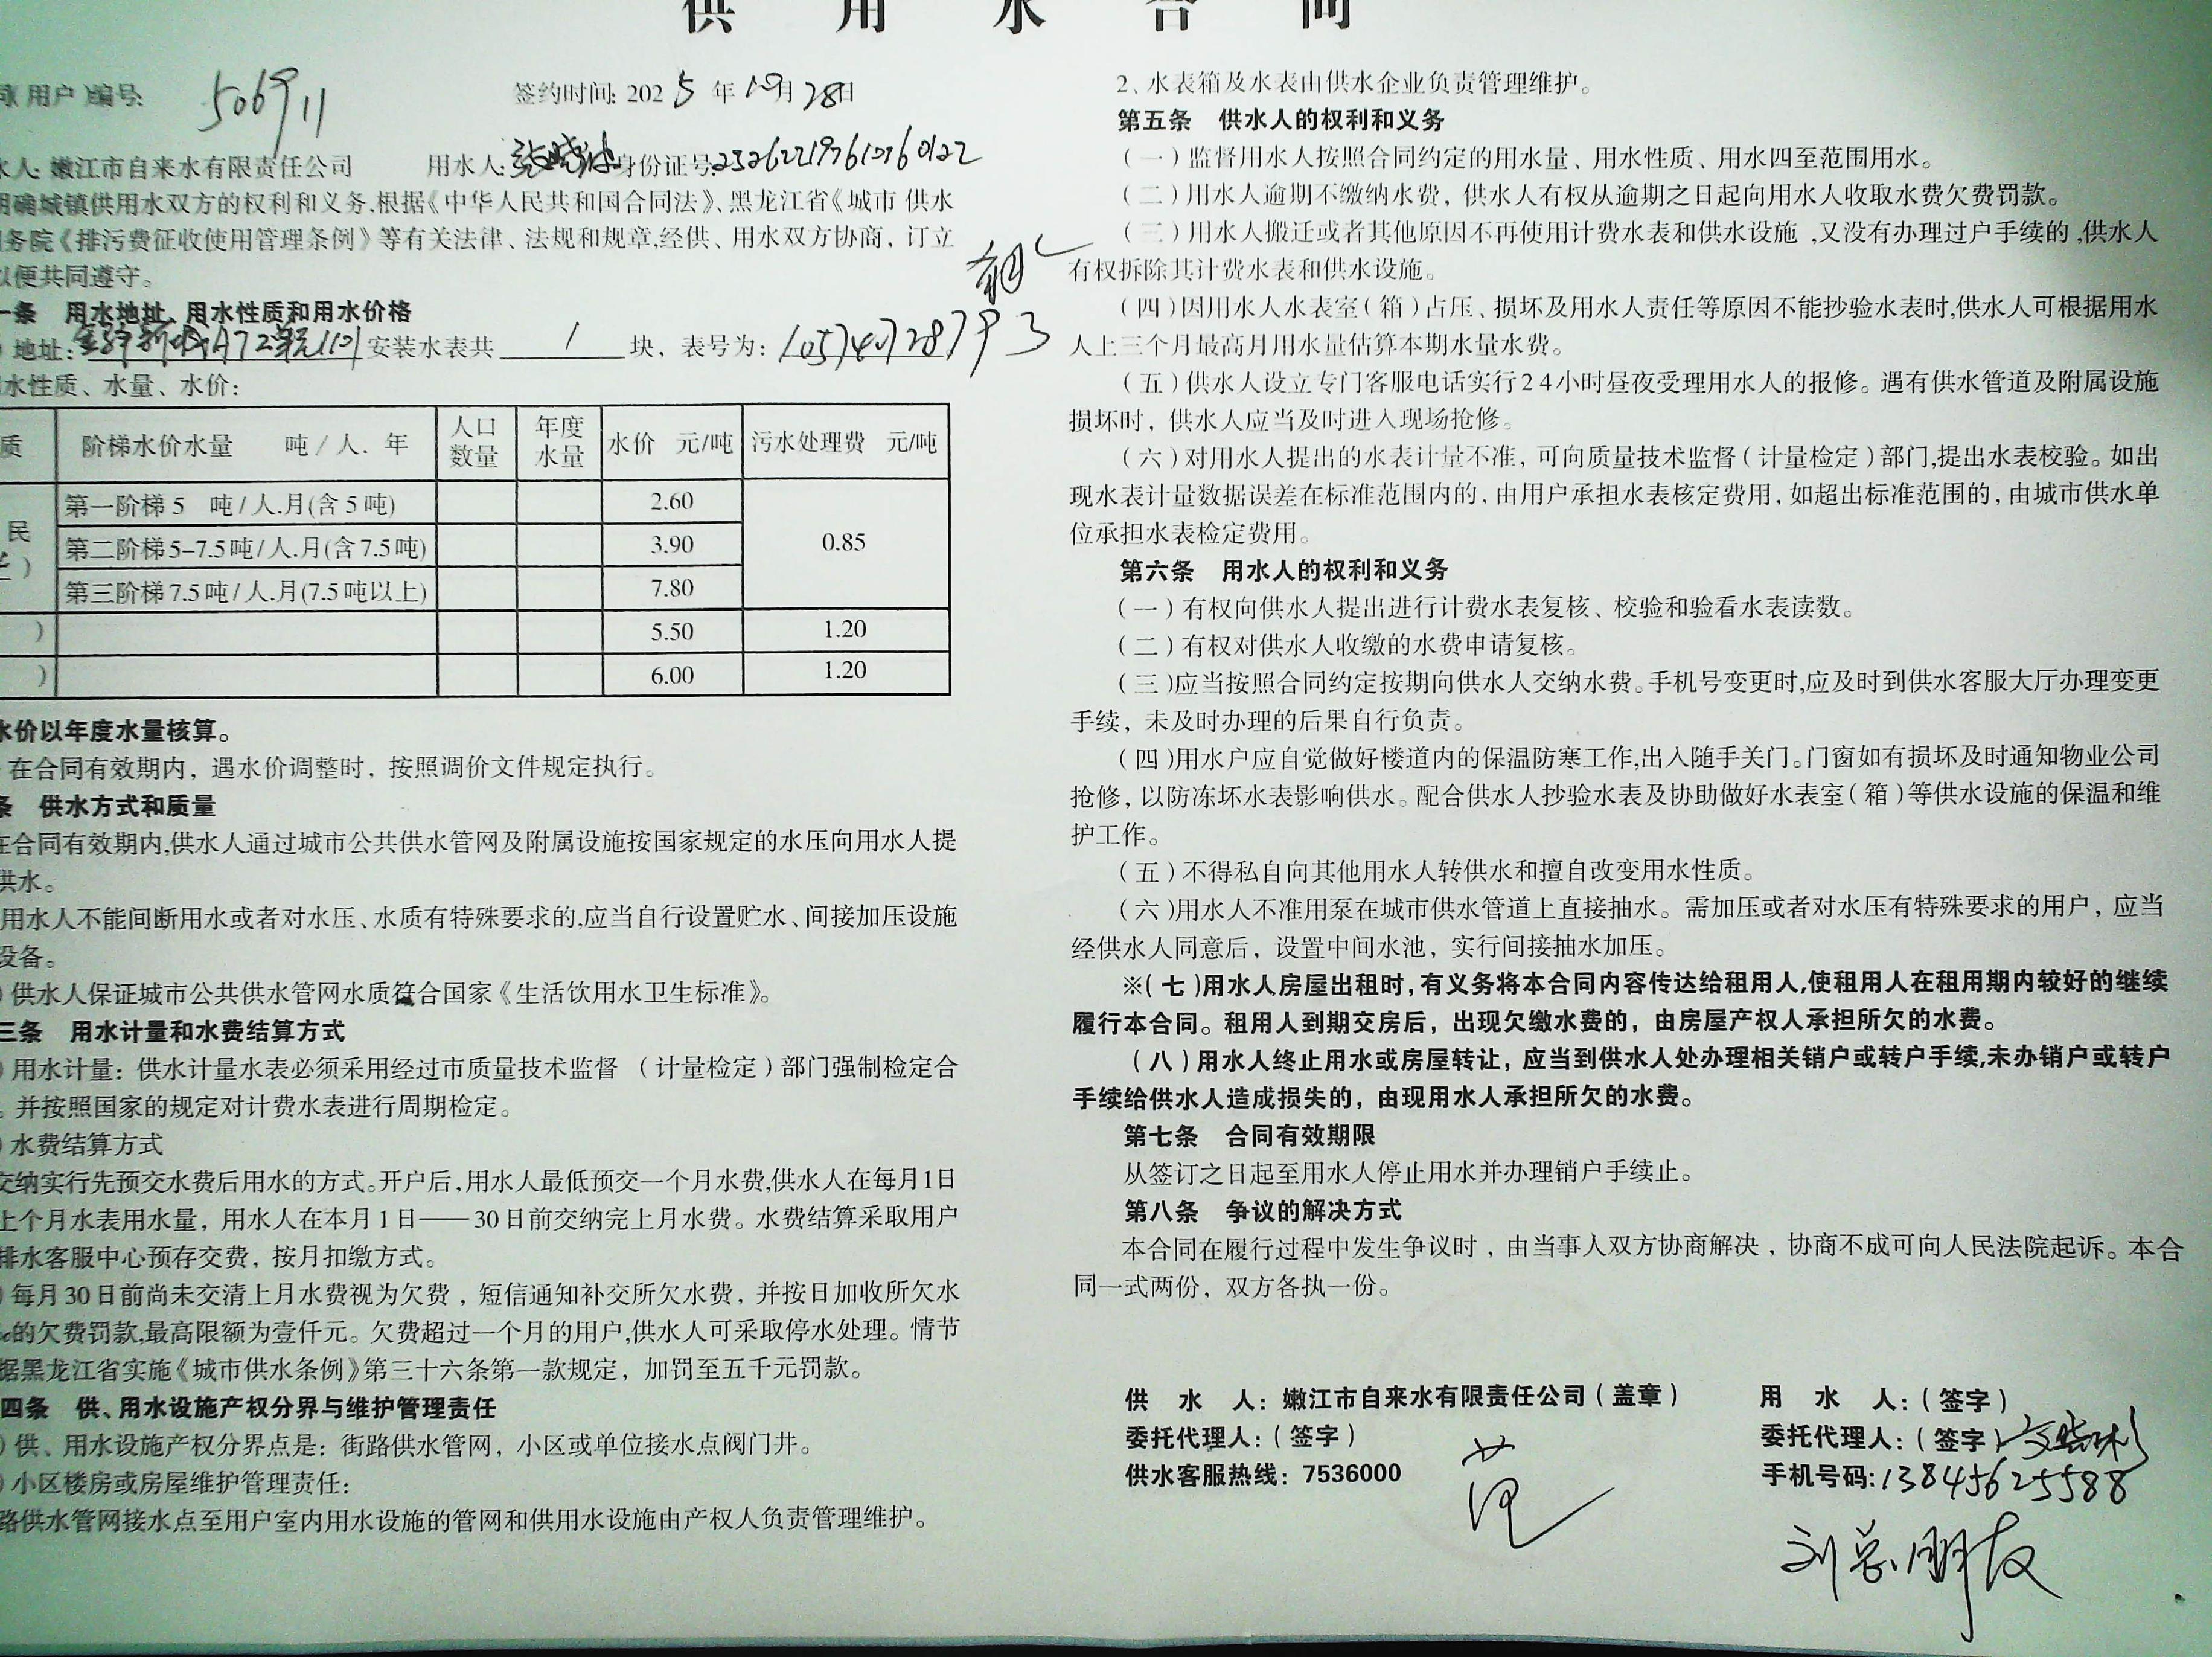 供用水合同
(用户)编号: 506911
签约时间: 2025年10月28日
水人: 嫩江市自来水有限责任公司 用水人: 身份证号:
明确城镇供用水双方的权利和义务.根据《中华人民共和国合同法》、黑龙江省《城市 供水
务院《排污费征收使用管理条例》等有关法律、法规和规章,经供、用水双方协商，订立
以便共同遵守。
一条 用水地址、用水性质和用水价格
地址: 安装水表共 1 块，表号为:
水性质、水量、水价:
质 阶梯水价水量 吨/人.年 人口数量 年度水量 水价 元/吨 污水处理费 元/吨
民 第一阶梯5 吨/人.月(含5吨) 2.60 0.85
第二阶梯5-7.5吨/人.月(含7.5吨) 3.90
第三阶梯7.5吨/人.月(7.5吨以上) 7.80
) 5.50 1.20
) 6.00 1.20
水价以年度水量核算。
在合同有效期内，遇水价调整时，按照调价文件规定执行。
条 供水方式和质量
在合同有效期内,供水人通过城市公共供水管网及附属设施按国家规定的水压向用水人提
供水。
用水人不能间断用水或者对水压、水质有特殊要求的,应当自行设置贮水、间接加压设施
设备。
)供水人保证城市公共供水管网水质符合国家《生活饮用水卫生标准》。
三条 用水计量和水费结算方式
)用水计量：供水计量水表必须采用经过市质量技术监督 （计量检定）部门强制检定合
。并按照国家的规定对计费水表进行周期检定。
)水费结算方式
交纳实行先预交水费后用水的方式。开户后,用水人最低预交一个月水费,供水人在每月1日
上个月水表用水量，用水人在本月1日——30日前交纳完上月水费。水费结算采取用户
排水客服中心预存交费，按月扣缴方式。
)每月30日前尚未交清上月水费视为欠费，短信通知补交所欠水费，并按日加收所欠水
的欠费罚款,最高限额为壹仟元。欠费超过一个月的用户,供水人可采取停水处理。情节
据黑龙江省实施《城市供水条例》第三十六条第一款规定，加罚至五千元罚款。
四条 供、用水设施产权分界与维护管理责任
)供、用水设施产权分界点是：街路供水管网，小区或单位接水点阀门井。
)小区楼房或房屋维护管理责任:
路供水管网接水点至用户室内用水设施的管网和供用水设施由产权人负责管理维护。
2、水表箱及水表由供水企业负责管理维护。
第五条 供水人的权利和义务
（一）监督用水人按照合同约定的用水量、用水性质、用水四至范围用水。
（二）用水人逾期不缴纳水费，供水人有权从逾期之日起向用水人收取水费欠费罚款。
（三）用水人搬迁或者其他原因不再使用计费水表和供水设施,又没有办理过户手续的,供水人
有权拆除其计费水表和供水设施。
（四）因用水人水表室（箱）占压、损坏及用水人责任等原因不能抄验水表时,供水人可根据用水
人上三个月最高月用水量估算本期水量水费。
（五）供水人设立专门客服电话实行24小时昼夜受理用水人的报修。遇有供水管道及附属设施
损坏时，供水人应当及时进入现场抢修。
（六）对用水人提出的水表计量不准，可向质量技术监督（计量检定）部门,提出水表校验。如出
现水表计量数据误差在标准范围内的，由用户承担水表核定费用，如超出标准范围的，由城市供水单
位承担水表检定费用。
第六条 用水人的权利和义务
（一）有权向供水人提出进行计费水表复核、校验和验看水表读数。
（二）有权对供水人收缴的水费申请复核。
（三）应当按照合同约定按期向供水人交纳水费。手机号变更时,应及时到供水客服大厅办理变更
手续，未及时办理的后果自行负责。
（四）用水户应自觉做好楼道内的保温防寒工作,出入随手关门。门窗如有损坏及时通知物业公司
抢修，以防冻坏水表影响供水。配合供水人抄验水表及协助做好水表室（箱）等供水设施的保温和维
护工作。
（五）不得私自向其他用水人转供水和擅自改变用水性质。
（六）用水人不准用泵在城市供水管道上直接抽水。需加压或者对水压有特殊要求的用户，应当
经供水人同意后，设置中间水池，实行间接抽水加压。
※（七）用水人房屋出租时,有义务将本合同内容传达给租用人,使租用人在租用期内较好的继续
履行本合同。租用人到期交房后，出现欠缴水费的，由房屋产权人承担所欠的水费。
（八）用水人终止用水或房屋转让，应当到供水人处办理相关销户或转户手续,未办销户或转户
手续给供水人造成损失的，由现用水人承担所欠的水费。
第七条 合同有效期限
从签订之日起至用水人停止用水并办理销户手续止。
第八条 争议的解决方式
本合同在履行过程中发生争议时，由当事人双方协商解决，协商不成可向人民法院起诉。本合
同一式两份，双方各执一份。
供 水 人：嫩江市自来水有限责任公司（盖章） 用 水 人：（签字）
委托代理人：（签字） 范 委托代理人：（签字）
供水客服热线：7536000 手机号码: 13845625588
刘总朋友